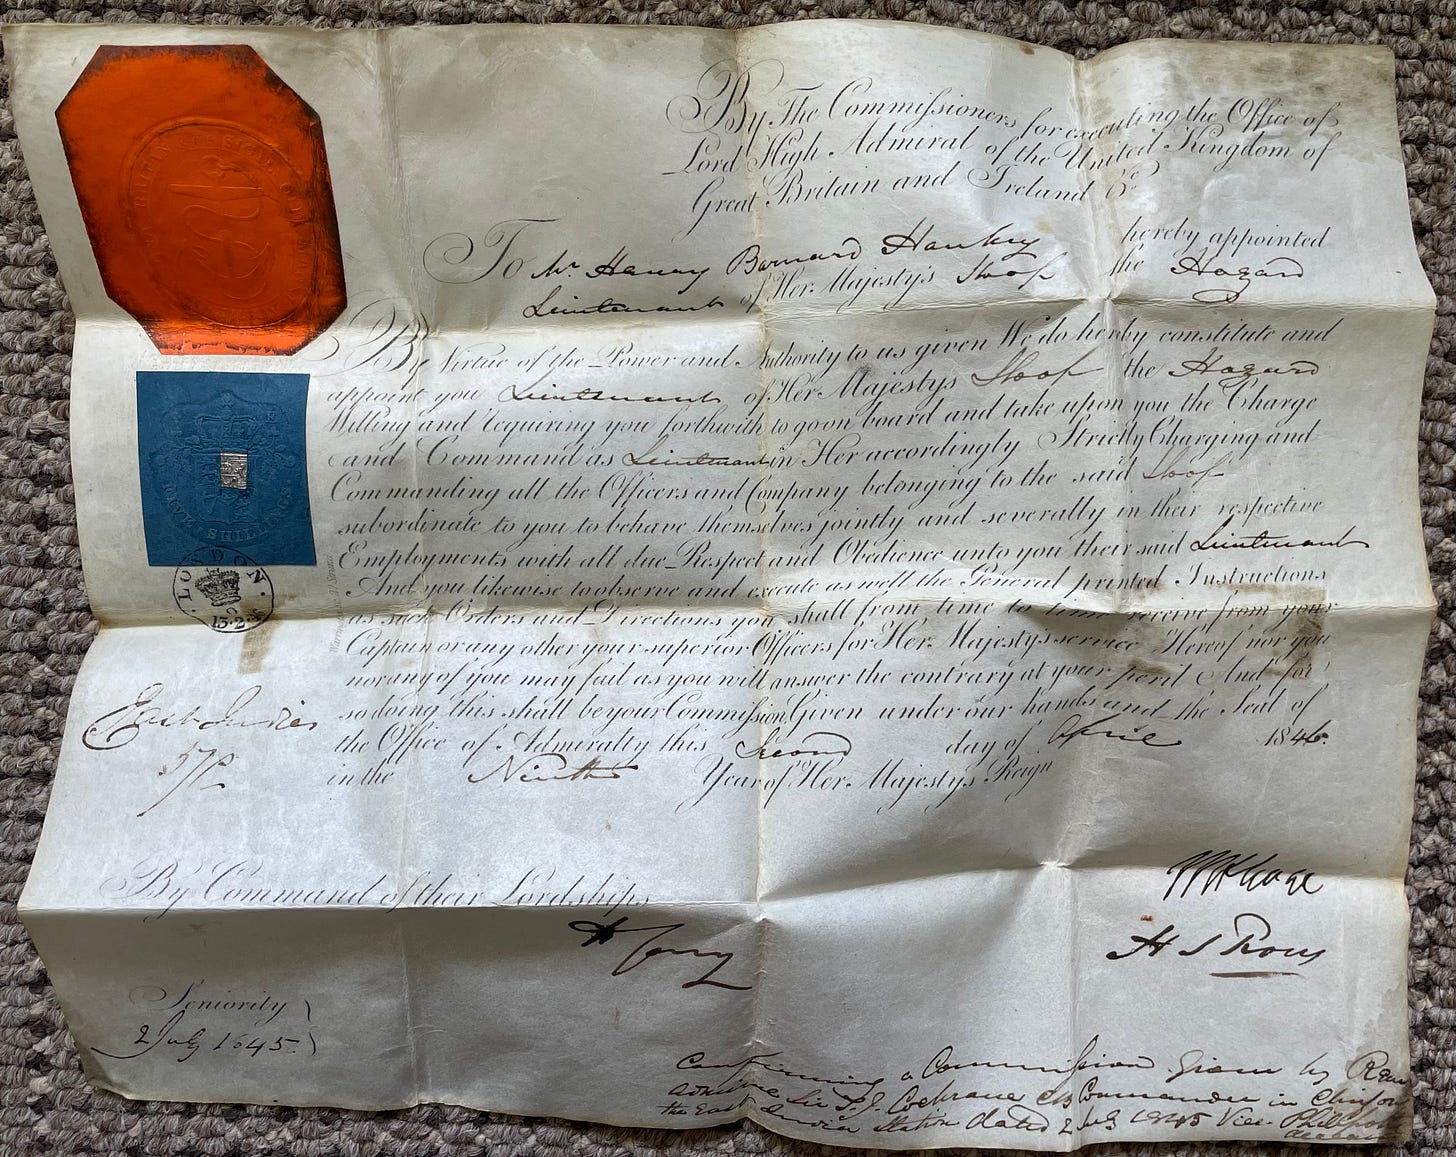 By The Commissioners for executing the Office of
Lord High Admiral of the United Kingdom of
Great Britain and Ireland &c
To Mr Henry Barnard Hankey hereby appointed
Lieutenant of Her Majesty's Sloop the Hazard
By Virtue of the Power and Authority to us given We do hereby constitute and
appoint you Lieutenant of Her Majestys Sloop the Hazard
Willing and requiring you forthwith to go on board and take upon you the Charge
and Command as Lieutenant in Her accordingly Strictly Charging and
Commanding all the Officers and Company belonging to the said Sloop
subordinate to you to behave themselves jointly and severally in their respective
Employments with all due Respect and Obedience unto you their said Lieutenant
And you likewise to observe and execute as well the General printed Instructions
as such Orders and Directions you shall from time to time receive from your
Captain or any other your superior Officers for Her Majestys service Hereof nor you
nor any of you may fail as you will answer the contrary at your peril And for
so doing this shall be your Commission Given under our hands and the Seal of
the Office of Admiralty this Second day of April 1846.
in the Ninth Year of Her Majestys Reign
FIVE SHILLINGS
LONDON
13.2
East Indies
57/2
By Command of their Lordships
H S Rous
Seniority
2 July 1845.
Confirming a Commission given by Rear
Admiral Sir T. J. Cochrane CB Commander in Chief on
the East India Station dated 2 July 1845 Vice Philpot